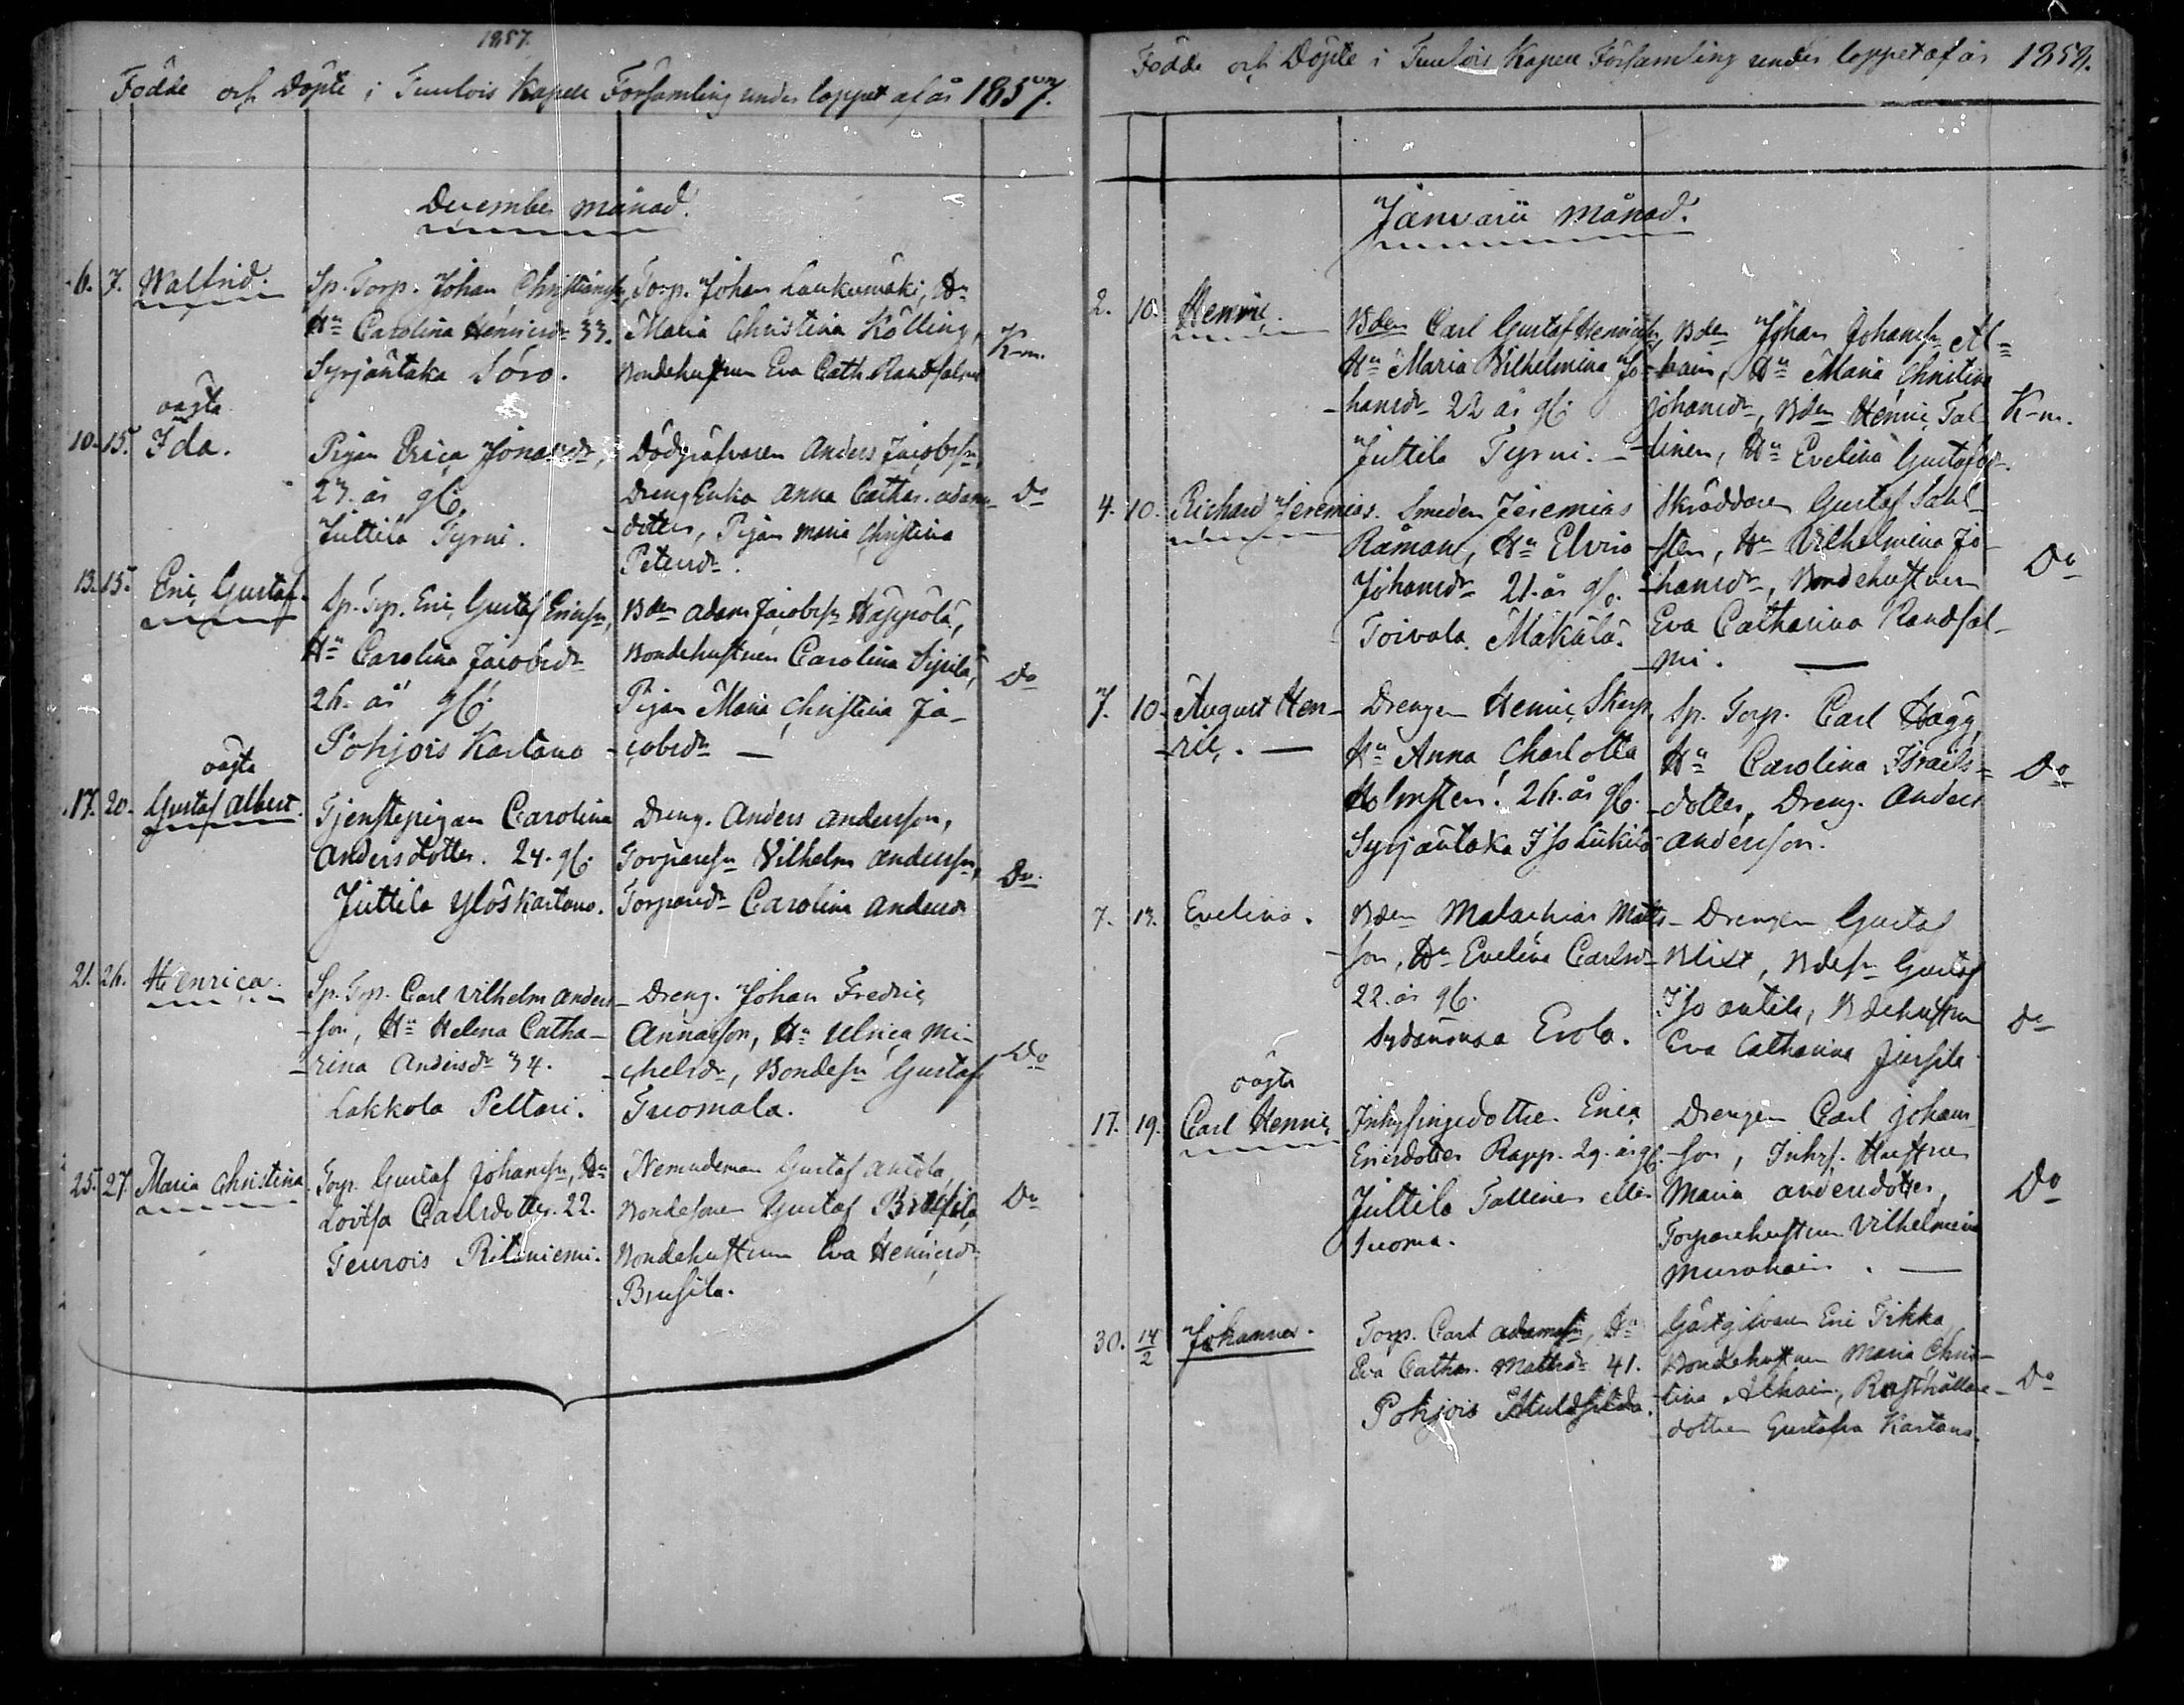 1857.
Födde och Döpte i Tuulois Kapell Församling under loppet af år 1857.
December månad.
6. 7. Walfrid.
Sp. Torp. Johan Christianss.
Hu Carolina Henricsdr 33.
Syrjäntaka Sóro.
Torp. Johan Laukumäki, Hu
Maria Christina Kölling,
Bondehustrun Eva Cath. Randsalmi
K-m.
oägta
10. 15. Ida.
Pigan Erica Jonasdr,
23. år gl.
Juttila Tyrni.
Dödgräfvaren Anders Jacobsn,
Dreng Enka Anna Cathar. Adams
dotter, Pigan Maria Christina
Petersdr.
Do
13. 15. Eric Gustaf.
Sp. Torp. Eric Gustaf Ericsn,
Hu Carolina Jacobsdr
26. år gl.
Pohjois Kartano
Bden Adam Jacobsn Häppölä,
Bondehustrun Carolina Sipilä,
Pigan Maria Christina Ja-
cobsdr —
Do
oägta
17. 20. Gustaf Albert.
Tjenstepigan Carolina
Andersdotter. 24. gl.
Juttila Ylöskartano.
Dreng. Anders Andersson,
Torparesn Vilhelm Andersn,
Torparedr Carolina Andersdr
Do
21. 26. Henrica.
Sp. Torp. Carl Vilhelm Anders-
-son, Hu Helena Catha-
-rina Andersdr 34.
Lakkola Peltari.
Dreng. Johan Fredric
Annasson, Hu Ulrica Mi-
-chelsdr, Bondesn Gustaf
Tuomala.
Do
25. 27. Maria Christina
Torp. Gustaf Johansn, Hu
Lovisa Carlsdotter. 22.
Teurois Ritiniemi.
Nemndeman Gustaf Antola,
Bondesonen Gustaf Brusila,
Bondehustrun Eva Henricsdr
Brusila.
Do
Födde och Döpte i Tuulois Kapell Församling under loppet af år 1858.
Januarii månad.
2. 10. Henric.
Bden Carl Gustaf Henricsn,
Hu Maria Vilhelmina Jo-
-hansdr 22 år gl.
Juttila Tyrni.
Bden Johan Johansn Al-
-hain, Hu Maria Christina
Johansdr, Bden Henric Tal-
-linen, Hu Evelina Gustafsdr.
K-m.
4. 10. Richard Jeremias.
Smeden Jeremias
Råman, Hu Elvira
Johansdr 21. år gl.
Toivala. Mäkilä.
Skräddaren Gustaf Sahl-
-sten, Hu Vilhelmina Jo-
-hansdr, Bondehustrun
Eva Catharina Randsal-
-mi. —
Do
7. 10. August Hen-
-ric. —
Drengen Henric Skarp,
Hu Anna Charlotta
Holmsten. 26. år gl.
Syrjäntaka Iso Lukila
Sp. Torp. Carl Hägg,
Hu Carolina Israels-
-dotter, Dreng. Anders
Andersson.
Do
7. 13. Evelina.
Bden Malachias Matts-
-son, Hu Evelina Carlsdr
22. år gl.
Sydänmaa Erola.
Drengen Gustaf
Blixt, Bdesn Gustaf
Iso antila, Bdehustrun
Eva Catharina
Do
oägta
17. 19. Carl Henric
Inhysingedotter Erica
Ericsdotter Rapp. 29. år gl.
Juttila Tallinen eller
Suoma.
Drengen Carl Johans-
-son, Inhys. Hustrun
Maria Andersdotter,
Torparehustrun Vilhelmina
Murohain. —
Do
30. 14/2 Johannes.
Torp. Carl Adamsn, Hu
Eva Cathar. Mattsdr 41.
Pohjois
Gästgifvaren Eric Tikka,
Bondehustrun Maria Chris-
tina Alhain, Rusthållare-
dotter Gustafva Kartano.
Do